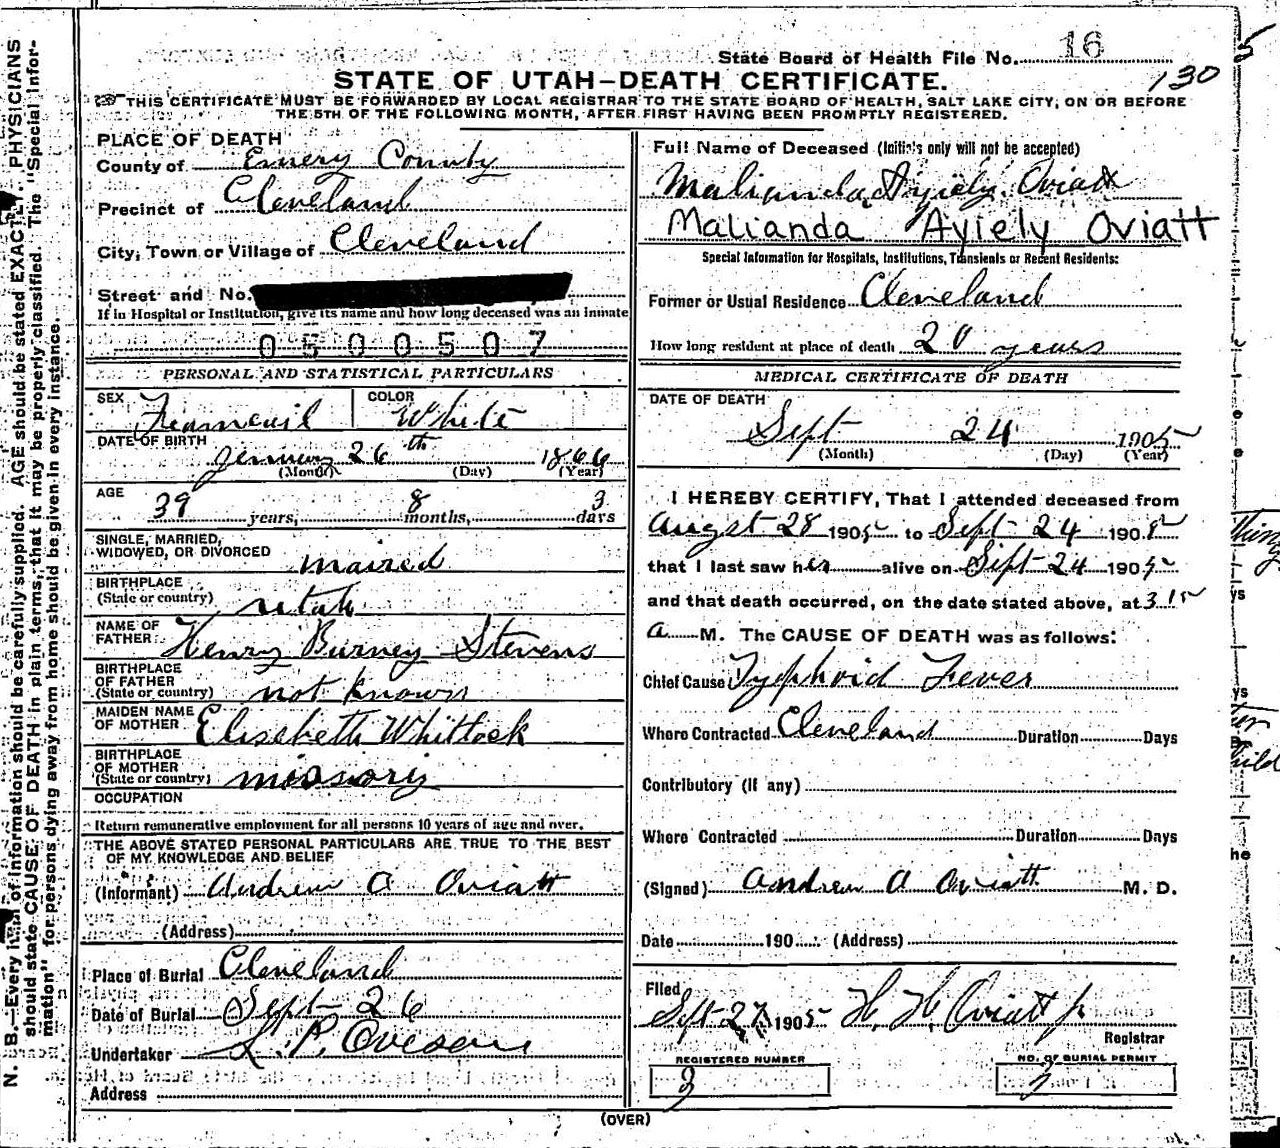 State Board of Health File No. 16
130
STATE OF UTAH–DEATH CERTIFICATE.
THIS CERTIFICATE MUST BE FORWARDED BY LOCAL REGISTRAR TO THE STATE BOARD OF HEALTH, SALT LAKE CITY, ON OR BEFORE
THE 5TH OF THE FOLLOWING MONTH, AFTER FIRST HAVING BEEN PROMPTLY REGISTERED.
PLACE OF DEATH
County of Emery County
Precinct of Cleveland
City, Town or Village of Cleveland
Street and No.
If in Hospital or Institution, give its name and how long deceased was an inmate
0500507
PERSONAL AND STATISTICAL PARTICULARS
SEX COLOR
White
DATE OF BIRTH
January 26th 1866
(Month) (Day) (Year)
AGE
39 years, 8 months, 3 days
SINGLE, MARRIED,
WIDOWED, OR DIVORCED maired
BIRTHPLACE
(State or country) utah
NAME OF
FATHER Henry Burney Stevens
BIRTHPLACE
OF FATHER
(State or country) not known
MAIDEN NAME
OF MOTHER Elisebeth Whitlock
BIRTHPLACE
OF MOTHER
(State or country) missory
OCCUPATION
Return remunerative employment for all persons 10 years of age and over.
THE ABOVE STATED PERSONAL PARTICULARS ARE TRUE TO THE BEST
OF MY KNOWLEDGE AND BELIEF
(Informant) Andrew A Oviatt
(Address)
Place of Burial Cleveland
Date of Burial Sept 26
Undertaker L. P. Oveson
Address
Full Name of Deceased (Initials only will not be accepted)
Malianda Ayiely Oviatt
Malianda Ayiely Oviatt
Special Information for Hospitals, Institutions, Transients or Recent Residents:
Former or Usual Residence Cleveland
How long resident at place of death 20 years
MEDICAL CERTIFICATE OF DEATH
DATE OF DEATH
Sept 24 1905
(Month) (Day) (Year)
I HEREBY CERTIFY, That I attended deceased from
Augst 28 1905 to Sept 24 1905
that I last saw her alive on Sept 24 1905
and that death occurred, on the date stated above, at 3 15
a M. The CAUSE OF DEATH was as follows:
Chief Cause Typhoid Fever
Where Contracted Cleveland Duration Days
Contributory (if any)
Where Contracted Duration Days
(Signed) Andrew A Oviatt M. D.
Date 190 (Address)
Filed
Sept 27 1905 H. H. Oviatt Jr
Registrar
REGISTERED NUMBER
3
NO. OF BURIAL PERMIT
3
(OVER)
N. B.—Every item of information should be carefully supplied. AGE should be stated EXACTLY. PHYSICIANS
should state CAUSE OF DEATH in plain terms, that it may be properly classified. The "Special Infor-
mation" for persons dying away from home should be given in every instance.